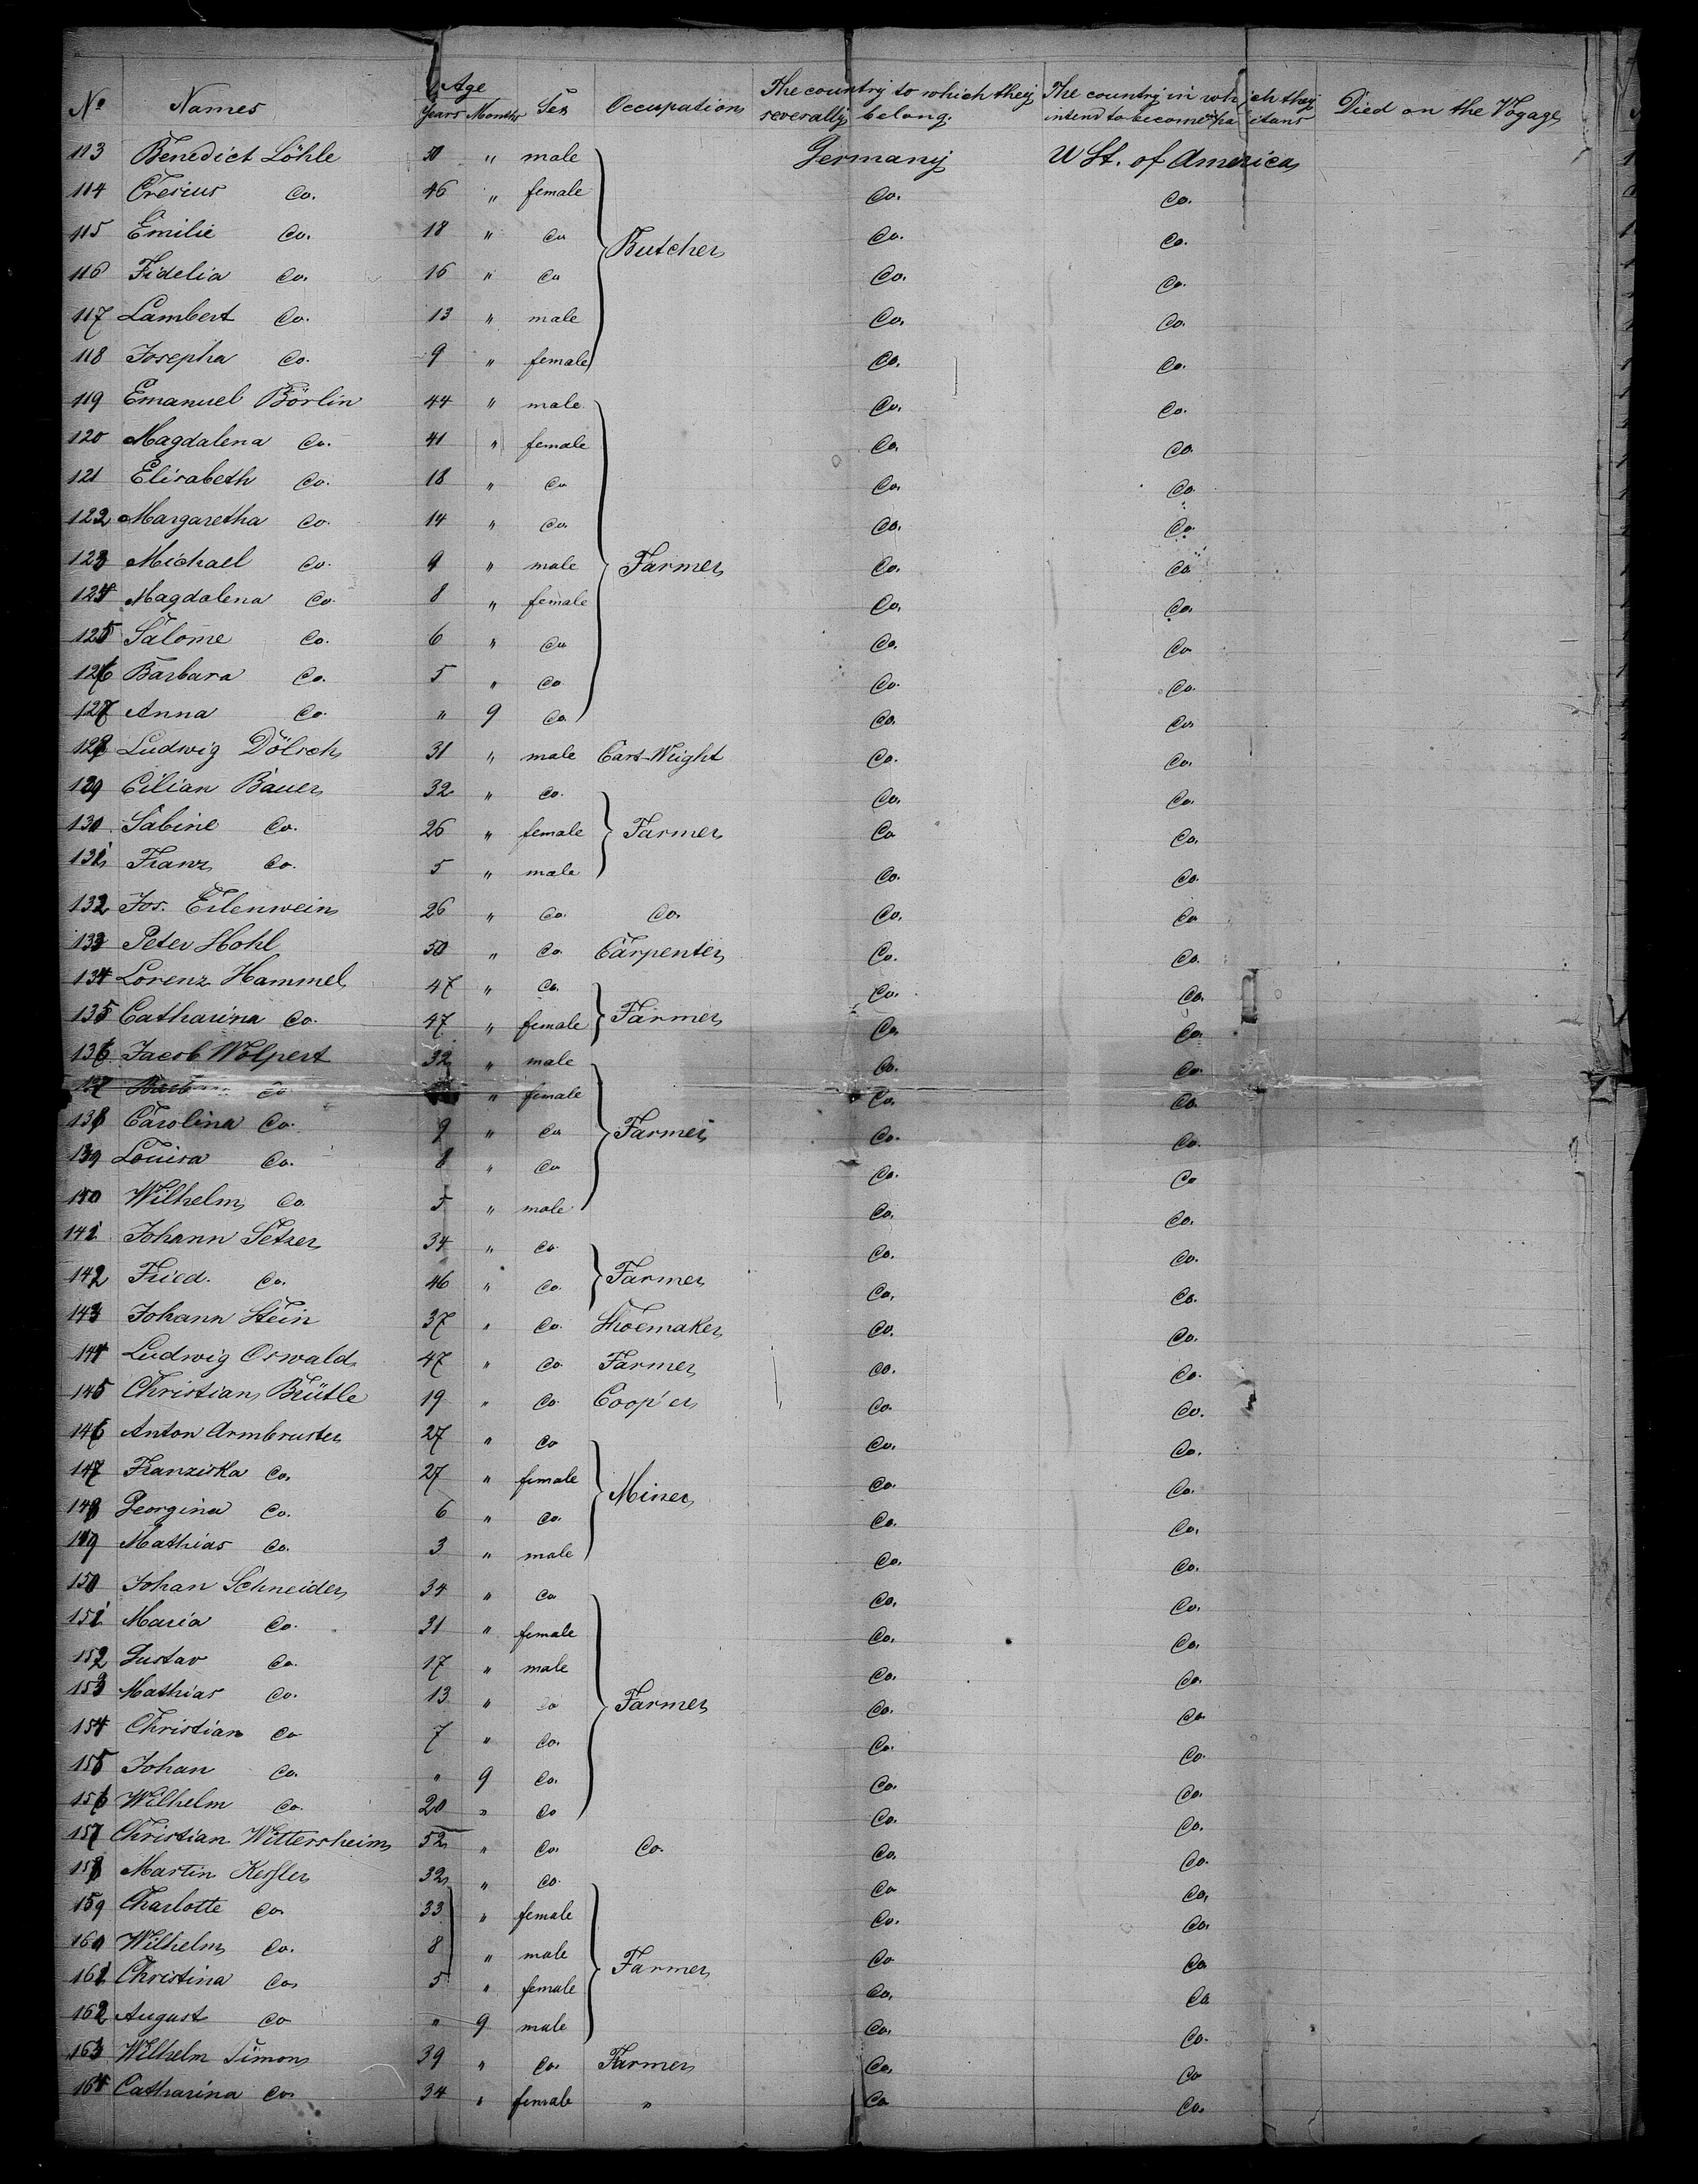 No Names Age Years Months Sex Occupation The country to which they severally belong. The country in which they intend to become inhabitans Died on the Voyage
113 Benedict Löhle 50 " male Germany U St. of America
114 Cresius Co. 46 " female Co. Co.
115 Emilie Co. 18 " Co Butcher Co. Co.
116 Fidelia Co. 16 " Co Co. Co.
117 Lambert Co. 13 " male Co. Co.
118 Josepha Co. 9 " female Co. Co.
119 Emanuel Börlin 44 " male Co. Co.
120 Magdalena Co. 41 " female Co. Co.
121 Elisabeth Co. 18 " Co Co. Co.
122 Margaretha Co. 14 " Co. Co. Co.
123 Michael Co. 9 " male Farmer Co. Co.
124 Magdalena Co. 8 " female Co. Co.
125 Salome Co. 6 " Co Co. Co.
126 Barbara Co. 5 " Co Co. Co.
127 Anna Co. " 9 Co. Co. Co.
128 Ludwig Dölsch 31 " male Cart-Wright Co. Co.
129 Cilian Bauer 32 " Co. Co. Co.
130 Sabine Co. 26 " female Farmer Co. Co.
131 Franz Co. 5 " male Co. Co.
132 Jos. Eilenwein 26 " Co. Co. Co. Co.
133 Peter Hohl 50 " Co. Carpenter Co. Co.
134 Lorenz Hammel 47 " Co. Co. Co.
135 Catharina Co. 47 " female Farmer Co. Co.
136 Jacob Wolpert 32 " male Co. Co.
137 Co " female Co. Co.
138 Carolina Co. 9 " Co Farmer Co. Co.
139 Louisa Co. 8 " Co Co. Co.
140 Wilhelm Co. 5 " male Co. Co.
141 Johann Setzer 34 " Co. Co. Co.
142 Fried. Co. 46 " Co. Farmer Co. Co.
143 Johann Stein 37 " Co. Shoemaker Co. Co.
144 Ludwig Oswald 47 " Co Farmer Co. Co.
145 Christian Brütle 19 " Co. Cooper Co. Co.
146 Anton Armbruster 27 " Co Co. Co.
147 Franziska Co. 27 " female Miner Co. Co.
148 Georgina Co. 6 " Co. Co. Co.
149 Mathias Co. 3 " male Co. Co.
150 Johan Schneider 34 " Co Co. Co.
151 Maria Co. 31 " female Co. Co.
152 Gustav Co. 17 " male Co. Co.
153 Mathias Co. 13 " Co Farmer Co. Co.
154 Christian Co 7 " Co. Co. Co.
155 Johan Co. " 9 Co. Co. Co.
156 Wilhelm Co. 20 " Co Co. Co.
157 Christian Wittersheim 52 " Co. Co. Co. Co.
158 Martin Keßler 32 " Co. Co Co.
159 Charlotte Co 33 " female Co. Co.
160 Wilhelm Co. 8 " male Farmer Co Co
161 Christina Co 5 " female Co. Co
162 August Co " 9 male Co. Co.
163 Wilhelm Simon 39 " Co. Farmer Co. Co
164 Catharina Co 34 " female " Co Co.